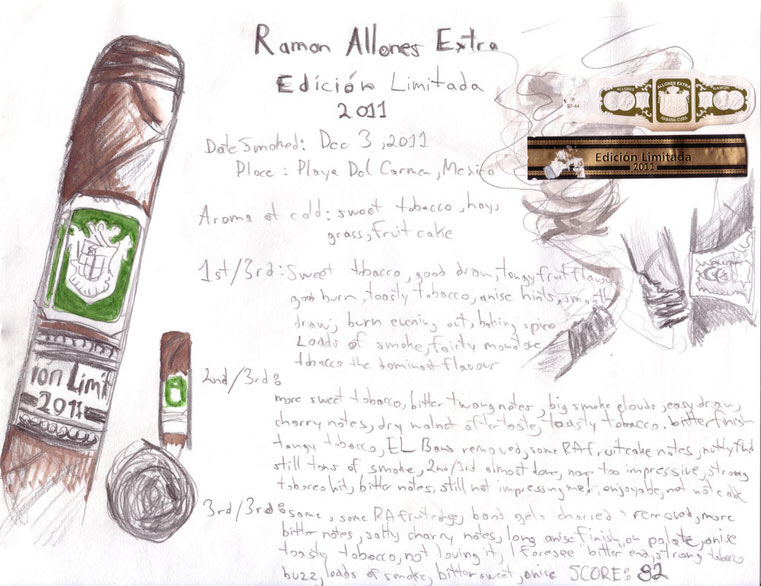 Ramon Allones Extra
Edición Limitada
2011
Date Smoked: Dec 3, 2011
Place: Playa Del Carmen, Mexico
ALLONES EXTRA
HABANA CUBA
Edición Limitada
2011
Aroma at cold: sweet tobacco, hay,
grass, fruit cake
1st/3rd: Sweet tobacco, good draw, tangy, fruit flavour
good burn, toasty tobacco, anise hints, smooth
draw, burn evening out, baking spice
Loads of smoke, fairly
tobacco the dominant flavour
ion Limit
2011
2nd/3rd:
more sweet tobacco, bitter twang notes, big smoke clouds, easy draw,
charry notes, dry walnut aftertaste, toasty tobacco. bitter finish
tangy tobacco, EL Band removed, some RA fruitcake notes,
still tons of smoke, 2nd/3rd almost done, not too impressive, strong
tobacco hit, bitter notes, still not impressing me, enjoyable, not
3rd/3rd: same, some RA fruit, band gets charred & removed, more
bitter notes, salty charry notes, long anise finish, on palate, anise
toasty tobacco, not loving it, I foresee bitter end, strong tobacco
buzz, loads of smoke, bittersweet, anise SCORE: 82